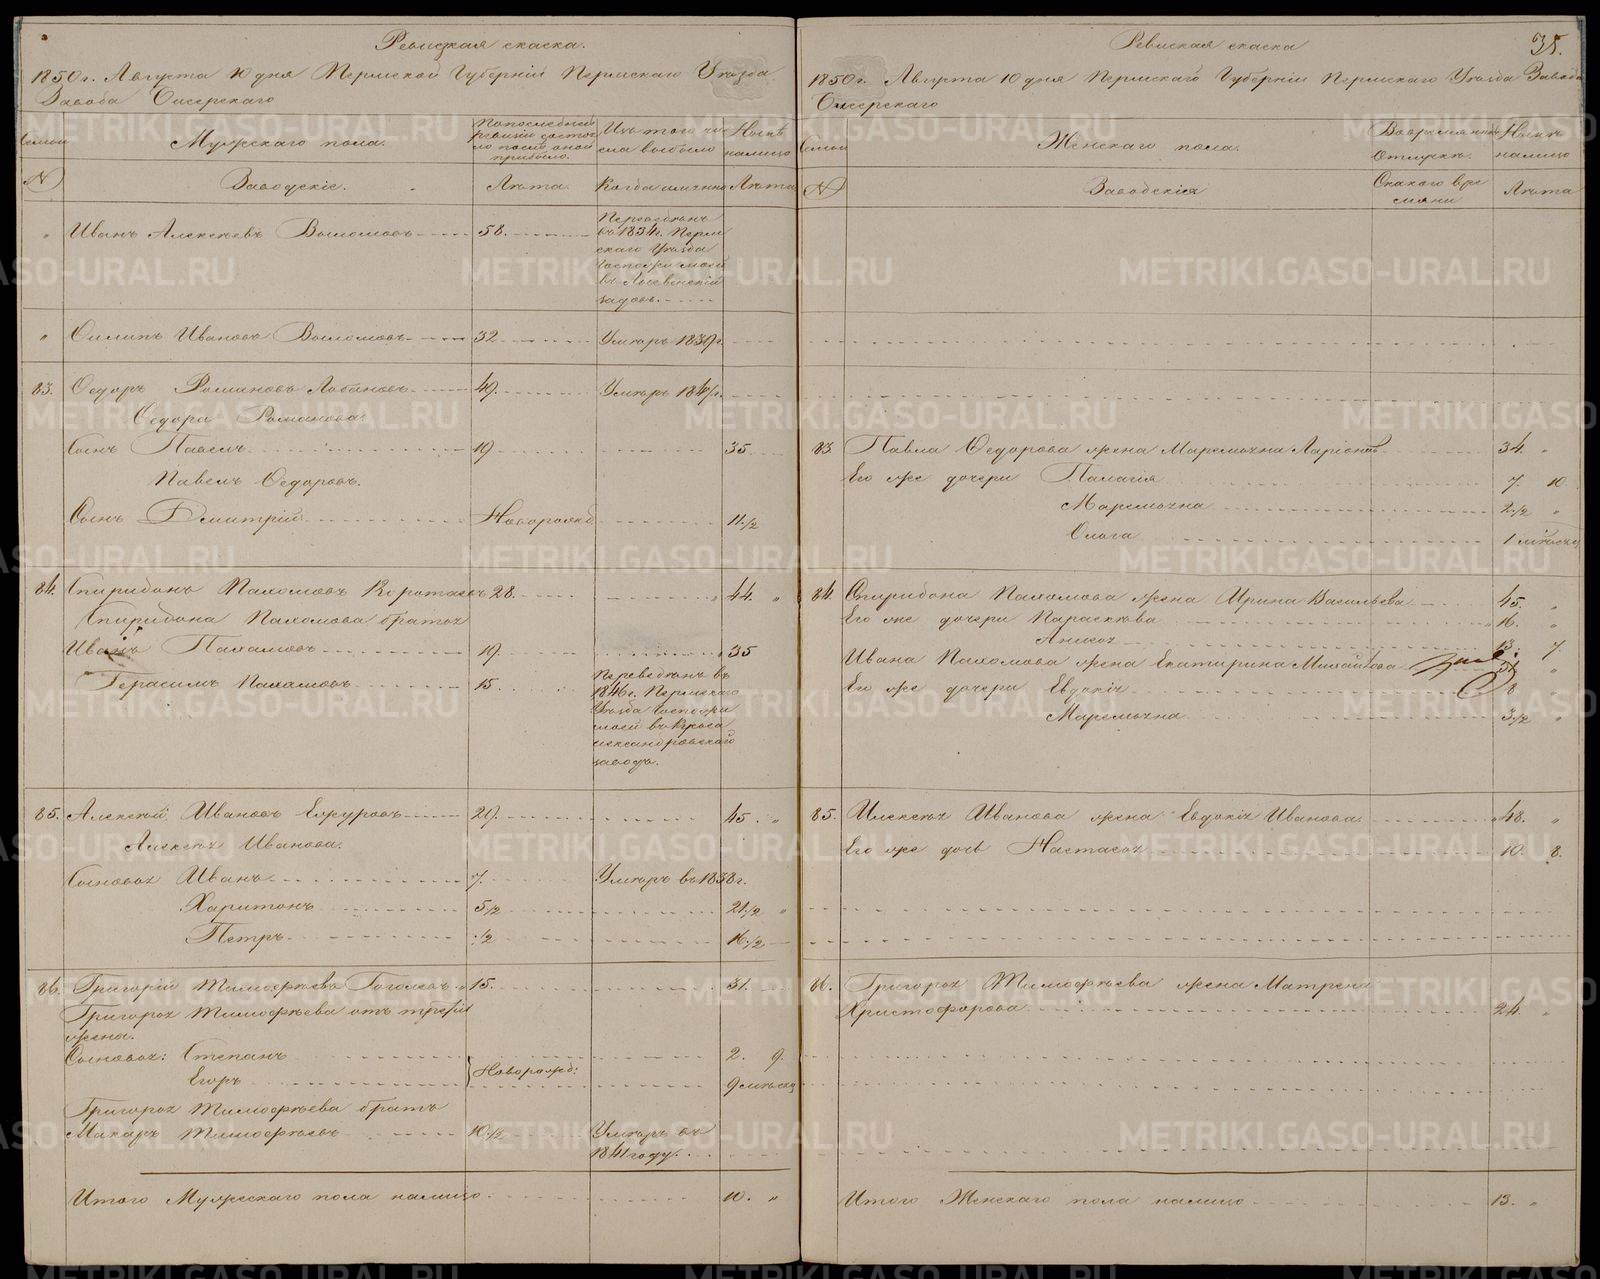 Ревизская скаска.
1850 г. Августа 10 дня Пермской Губерніи Пермскаго Уѣзда
Завода Бисерскаго
Семьи
Мужескаго пола.
По последней ревизіи состояло и после оной прибыло.
Изъ того числа выбыло
Нынѣ налицо
№
Заводскіе.
Лѣта.
Когда именно
Лѣта
" Иванъ Алексѣевъ 58.
Переведенъ
въ 1834 г. Перм
скаго Уѣзда
Госпожи моей
въ Лысвенскій
заводъ.
" Филипъ Ивановъ 32 Умеръ 1839 г.
83. Федоръ Романовъ Лобановъ 49. Умеръ 1847 г.
Федора Романова:
Сынъ Павелъ 19 35
Павелъ Федоровъ.
Сынъ Дмитрій Новорожд 11 1/2
84. Спиридонъ Пахомовъ Коротаевъ 28. 44. "
Спиридона Пахомова братья
Иванъ Пахомовъ 19. 35
Герасимъ Пахомовъ 15.
Переведенъ въ
1846 г. Пермскаго
Уѣзда Госпожи
моей въ Кресто
александровскій
заводъ.
85. Алексѣй Ивановъ 29. 45. "
Алексѣя Иванова.
Сыновья Иванъ 7. Умеръ въ 1838 г.
Харитонъ 5 1/2 21 1/2 "
Петръ 1/2 16 1/2
86. Григорій Тимофѣевъ Гоголевъ 15. 31.
Григорья Тимофѣева отъ третьій
жены.
Сыновья: Степанъ 2. 9.
Егоръ Новорожд: 9 месяц
Григорья Тимофѣева братъ
Макаръ Тимофѣевъ 10 1/2 Умеръ въ
1841 году.
Итого Мужескаго пола налицо 10. "
Ревиская скаска
35.
1850 г. Августа 10 дня Пермскаго Губерніи Пермскаго Уѣзда Завода
Бисерскаго
Семьи
Женскаго пола.
Во временной Отлучкѣ.
Нынѣ налицо
№
Заводскія
Скакого времяни
Лѣта
83 Павла Федорова жена Маремьяна Ларіонова 34. "
Его же дочери Палагія 7. 10
Маремьяна 2 1/2 "
Ольга 1 месяц
84. Спиридона Пахомова жена Ирина Васильева 45. "
Его же дочери Парасковья 16. "
Анисья 13. 7
Ивана Пахомова жена Екатирина Михайлова "
Его же дочери Евдокія 8 "
Маремьяна 3 1/2 "
85. Алексѣя Иванова жена Евдокія Иванова 48. "
Его же дочь Настасья 10. 8.
86. Григорья Тимофѣева жена Матрена
Христофорова 24. "
Итого Женскаго пола налицо 13. "
METRIKI.GASO-URAL.RU